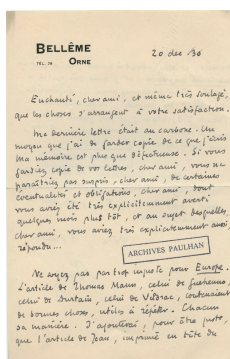 BELLÊME
TEL. 36 ORNE
20 dec 36
Enchanté, cher ami, et même très soulagé,
que les choses s'arrangent à votre satisfaction.
Ma dernière lettre était au carbone. Un
moyen que j'ai de garder copie de ce que j'écris
Ma mémoire est plus que défectueuse. Si vous
gardiez copie de vos lettres, cher ami, vous ne
paraîtriez pas surpris, cher ami, de certaines
éventualités et obligations, cher ami, dont
vous aviez été très explicitement averti
quelques mois plus tôt, et au sujet desquelles,
cher ami, vous aviez très explicitement aussi
répondu...
ARCHIVES PAULHAN
Ne soyez pas par trop injuste pour Europe.
L'article de Thomas Mann, celui de Guehenno,
celui de Durtain, celui de Vildrac, contenaient
de bonnes choses, utiles à répéter. Chacun
sa manière. J'ajouterai, pour être juste,
que l'article de Jean, imprimé en tête du